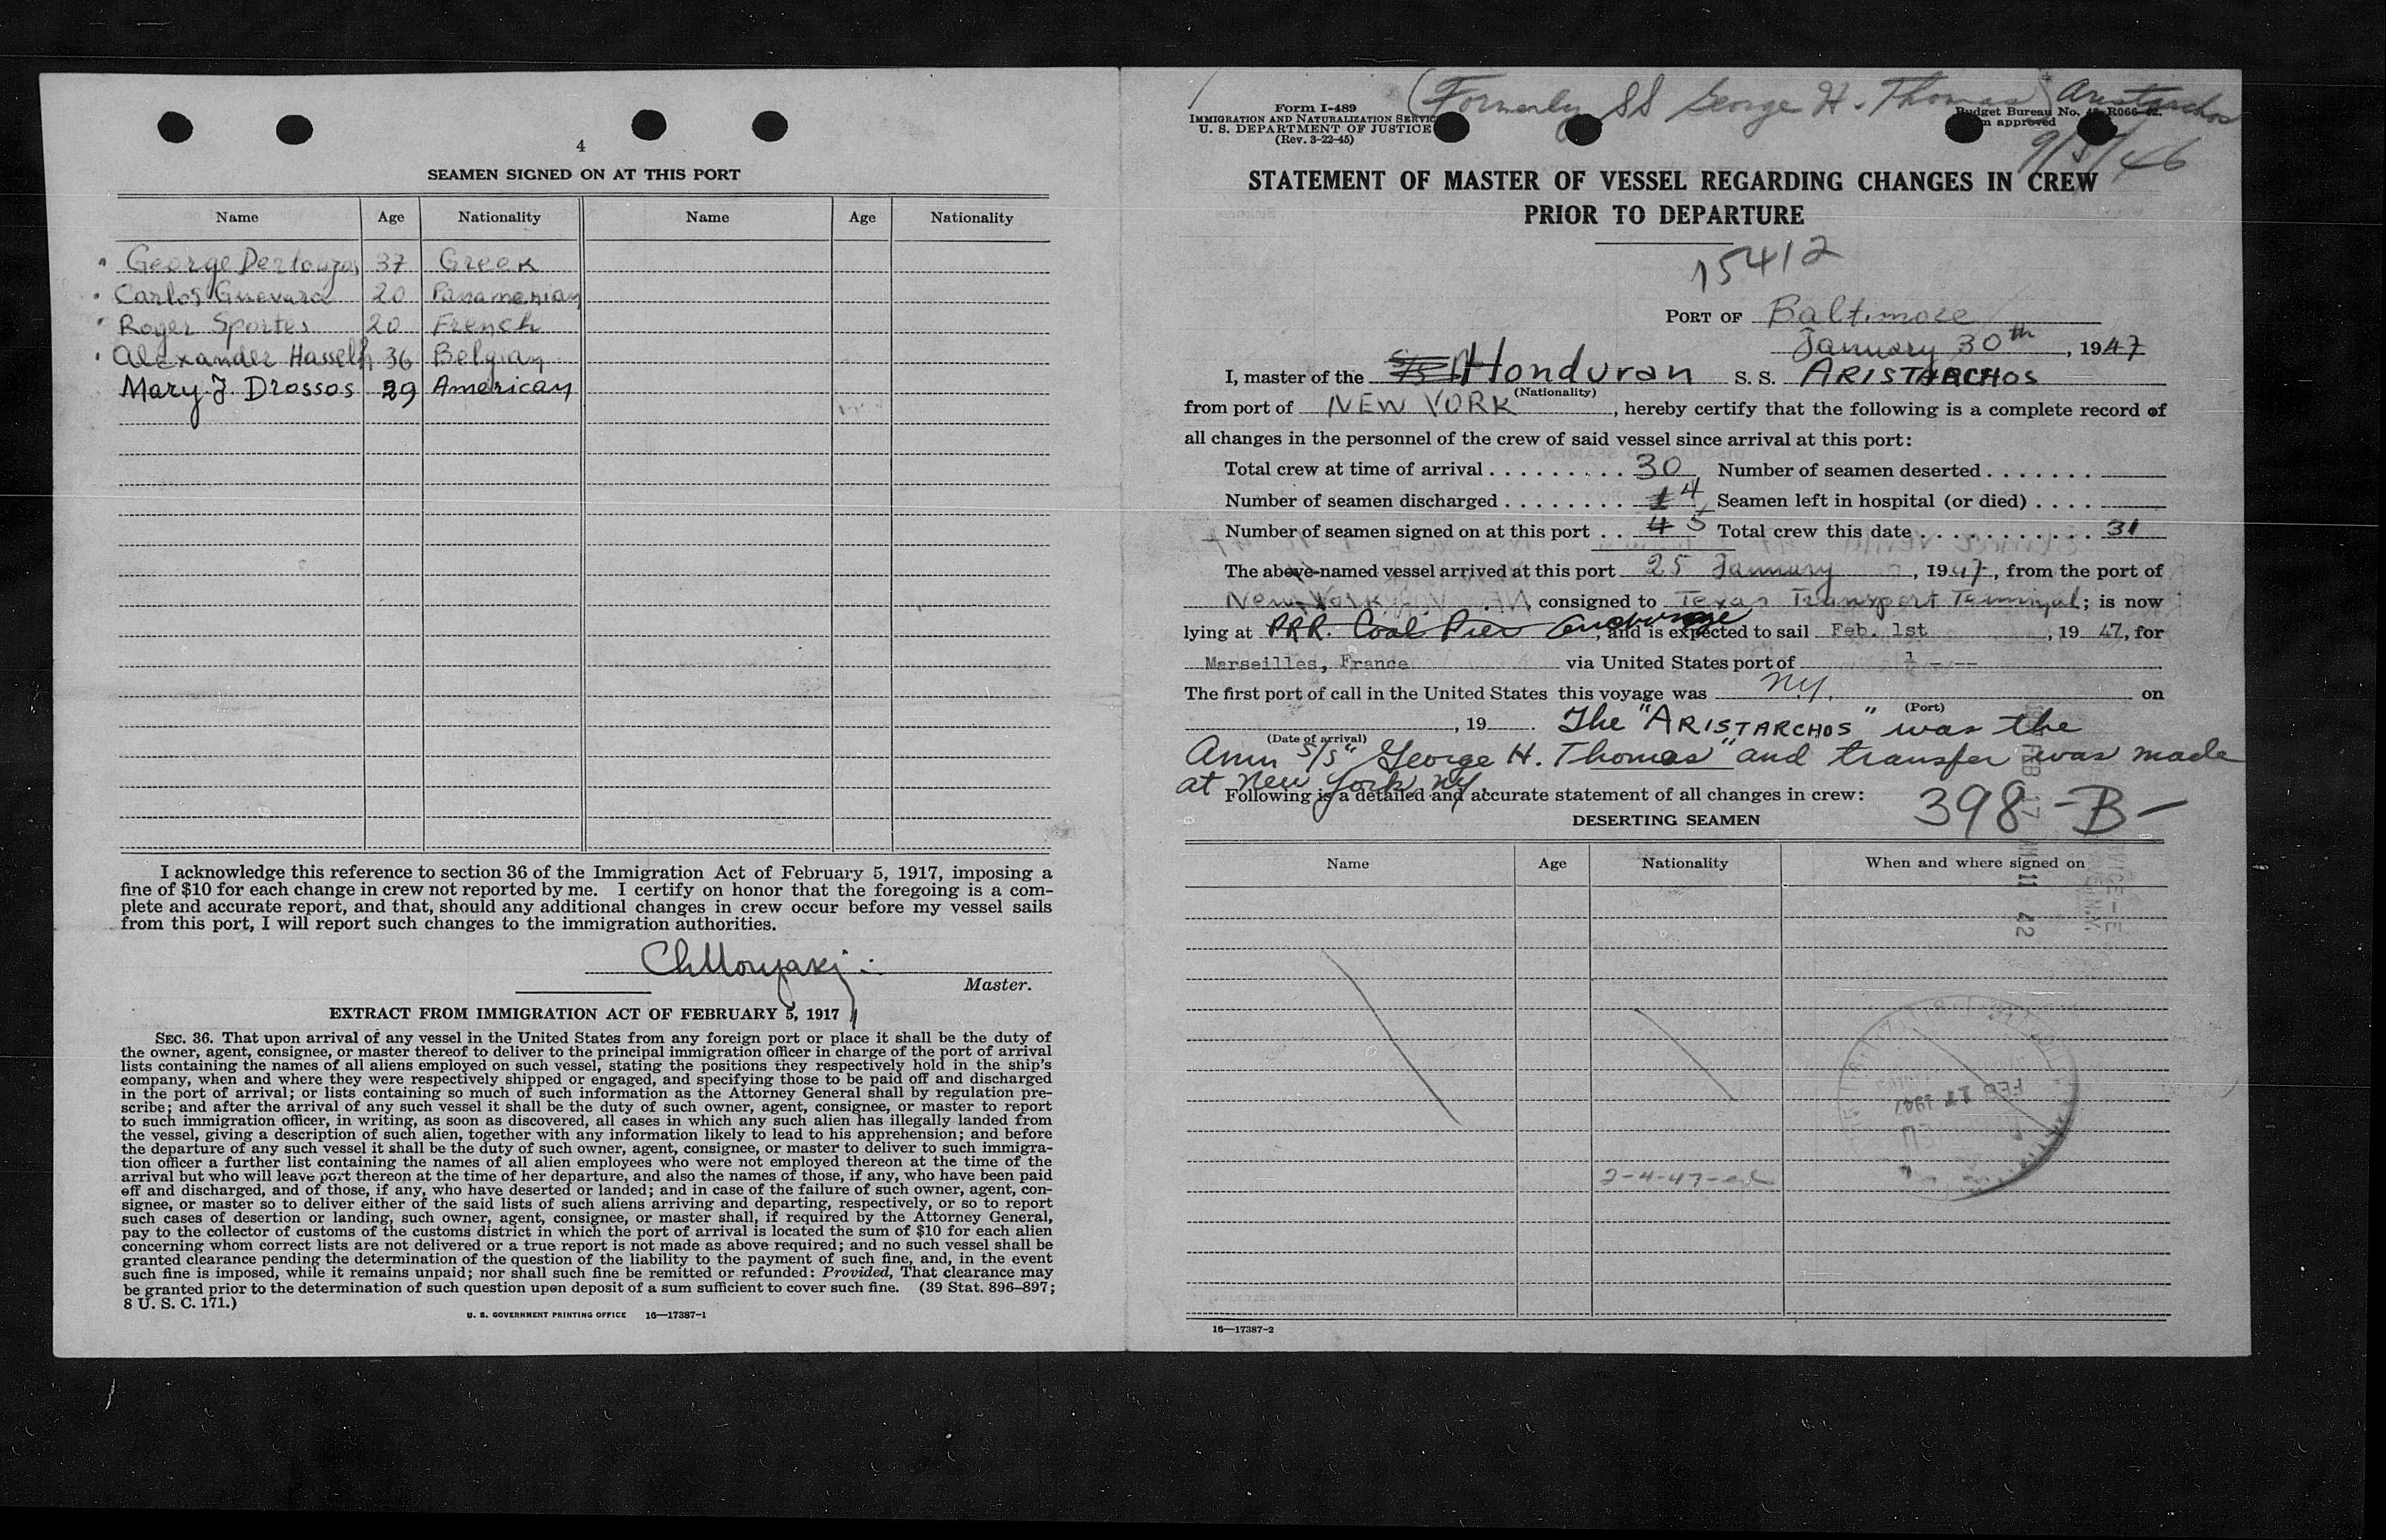 4
SEAMEN SIGNED ON AT THIS PORT
Name Age Nationality Name Age Nationality
George Dertouzos 37 Greek
Carlos Guevara 20 Panamenian
Roger Sportes 20 French
Alexander 36 Belgian
Mary J. Drossos 29 American
I acknowledge this reference to section 36 of the Immigration Act of February 5, 1917, imposing a
fine of $10 for each change in crew not reported by me. I certify on honor that the foregoing is a com-
plete and accurate report, and that, should any additional changes in crew occur before my vessel sails
from this port, I will report such changes to the immigration authorities.
Master.
EXTRACT FROM IMMIGRATION ACT OF FEBRUARY 5, 1917
SEC. 36. That upon arrival of any vessel in the United States from any foreign port or place it shall be the duty of
the owner, agent, consignee, or master thereof to deliver to the principal immigration officer in charge of the port of arrival
lists containing the names of all aliens employed on such vessel, stating the positions they respectively hold in the ship's
company, when and where they were respectively shipped or engaged, and specifying those to be paid off and discharged
in the port of arrival; or lists containing so much of such information as the Attorney General shall by regulation pre-
scribe; and after the arrival of any such vessel it shall be the duty of such owner, agent, consignee, or master to report
to such immigration officer, in writing, as soon as discovered, all cases in which any such alien has illegally landed from
the vessel, giving a description of such alien, together with any information likely to lead to his apprehension; and before
the departure of any such vessel it shall be the duty of such owner, agent, consignee, or master to deliver to such immigra-
tion officer a further list containing the names of all alien employees who were not employed thereon at the time of the
arrival but who will leave port thereon at the time of her departure, and also the names of those, if any, who have been paid
off and discharged, and of those, if any, who have deserted or landed; and in case of the failure of such owner, agent, con-
signee, or master so to deliver either of the said lists of such aliens arriving and departing, respectively, or so to report
such cases of desertion or landing, such owner, agent, consignee, or master shall, if required by the Attorney General,
pay to the collector of customs of the customs district in which the port of arrival is located the sum of $10 for each alien
concerning whom correct lists are not delivered or a true report is not made as above required; and no such vessel shall be
granted clearance pending the determination of the question of the liability to the payment of such fine, and, in the event
such fine is imposed, while it remains unpaid; nor shall such fine be remitted or refunded: Provided, That clearance may
be granted prior to the determination of such question upon deposit of a sum sufficient to cover such fine. (39 Stat. 896–897;
8 U. S. C. 171.)
U. S. GOVERNMENT PRINTING OFFICE 16—17387-1
(Formerly SS George H. Thomas) Aristarchos
9/5/46
Form I-489
IMMIGRATION AND NATURALIZATION SERVICE
U. S. DEPARTMENT OF JUSTICE
(Rev. 3-22-45)
Budget Bureau No. R066
approved
STATEMENT OF MASTER OF VESSEL REGARDING CHANGES IN CREW
PRIOR TO DEPARTURE
15412
PORT OF Baltimore
January 30th, 1947
I, master of the Honduran S. S. ARISTARCHOS
(Nationality)
from port of NEW YORK, hereby certify that the following is a complete record of
all changes in the personnel of the crew of said vessel since arrival at this port:
Total crew at time of arrival . . . . . . . . . 30 Number of seamen deserted . . . . . . .
Number of seamen discharged . . . . . . . . 1 4 Seamen left in hospital (or died) . . . .
Number of seamen signed on at this port . . 4 5 Total crew this date . . . . . . . . . . . 31
The above-named vessel arrived at this port 25 January, 1947, from the port of
New York, consigned to Texas Transport Terminal; is now
lying at PRR. Coal Pier anchorage, and is expected to sail Feb. 1st, 19 47, for
Marseilles, France via United States port of - --
The first port of call in the United States this voyage was N.Y. on
(Port)
, 19 . The "ARISTARCHOS" was the
(Date of arrival)
Amn S/S "George H. Thomas" and transfer was made
at New York NY.
Following is a detailed and accurate statement of all changes in crew:
398-B-
DESERTING SEAMEN
Name Age Nationality When and where signed on
FEB 17 11 42
FEB 17 1947
2-4-47-
16—17387-2